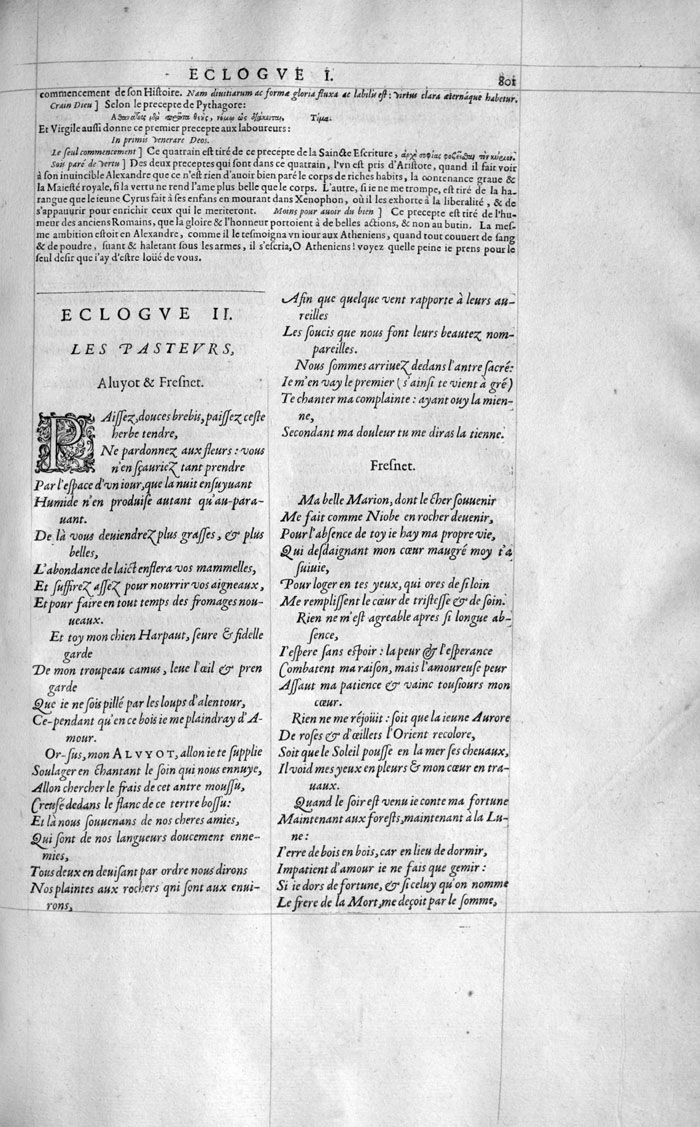 ECLOGVE I.
801
commencement de son Histoire. Nam diuitiarum ac formæ gloria fluxa ac labilis est: virtus clara æternáque habetur.
Crain Dieu ] Selon le precepte de Pythagore:
Et Virgile aussi donne ce premier precepte aux laboureurs:
In primis venerare Deos.
Le seul commencement ] Ce quatrain est tiré de ce precepte de la Saincte Escriture,
Sois paré de vertu ] Des deux preceptes qui sont dans ce quatrain, l'vn est pris d'Aristote, quand il fait voir
à son inuincible Alexandre que ce n'est rien d'auoir bien paré le corps de riches habits, la contenance graue &
la Maiesté royale, si la vertu ne rend l'ame plus belle que le corps. L'autre, si ie ne me trompe, est tiré de la ha-
rangue que le ieune Cyrus fait à ses enfans en mourant dans Xenophon, où il les exhorte à la liberalité, & de
s'appauurir pour enrichir ceux qui le meriteront. Moins pour auoir du bien ] Ce precepte est tiré de l'hu-
meur des anciens Romains, que la gloire & l'honneur portoient à de belles actions, & non au butin. La mes-
me ambition estoit en Alexandre, comme il le tesmoigna vn iour aux Atheniens, quand tout couuert de sang
& de poudre, suant & haletant sous les armes, il s'escria, O Atheniens! voyez quelle peine ie prens pour le
seul desir que i'ay d'estre loüé de vous.
ECLOGVE II.
LES PASTEVRS,
Aluyot & Fresnet.
PAissez, douces brebis, paissez ceste
herbe tendre,
Ne pardonnez aux fleurs: vous
n'en sçauriez tant prendre
Par l'espace d'vn iour, que la nuit ensuyuant
Humide n'en produise autant qu'au-para-
uant.
De là vous deuiendrez plus grasses, & plus
belles,
L'abondance de laict enflera vos mammelles,
Et suffirez assez pour nourrir vos aigneaux,
Et pour faire en tout temps des fromages nou-
ueaux.
Et toy mon chien Harpaut, seure & fidelle
garde
De mon troupeau camus, leue l'œil & pren
garde
Que ie ne sois pillé par les loups d'alentour,
Ce-pendant qu'en ce bois ie me plaindray d'A-
mour.
Or-sus, mon ALVYOT, allon ie te supplie
Soulager en chantant le soin qui nous ennuye,
Allon chercher le frais de cet antre moussu,
Creusé dedans le flanc de ce tertre bossu:
Et là nous souuenans de nos cheres amies,
Qui sont de nos langueurs doucement enne-
mies,
Tous deux en deuisant par ordre nous dirons
Nos plaintes aux rochers qni sont aux enui-
rons,
Afin que quelque vent rapporte à leurs au-
reilles
Les soucis que nous font leurs beautez nom-
pareilles.
Nous sommes arriuez dedans l'antre sacré:
Ie m'en vay le premier (s'ainsi te vient à gré)
Te chanter ma complainte: ayant ouy la mien-
ne,
Secondant ma douleur tu me diras la tienne.
Fresnet.
Ma belle Marion, dont le cher souuenir
Me fait comme Niobe en rocher deuenir,
Pour l'absence de toy ie hay ma propre vie,
Qui desdaignant mon cœur maugré moy t'a
suiuie,
Pour loger en tes yeux, qui ores de si loin
Me remplissent le cœur de tristesse & de soin.
Rien ne m'est agreable apres si longue ab-
sence,
I'espere sans espoir: la peur & l'esperance
Combatent ma raison, mais l'amoureuse peur
Assaut ma patience & vainc tousiours mon
cœur.
Rien ne me réjoüit: soit que la ieune Aurore
De roses & d'œillets l'Orient recolore,
Soit que le Soleil pousse en la mer ses cheuaux,
Il void mes yeux en pleurs & mon cœur en tra-
uaux.
Quand le soir est venu ie conte ma fortune
Maintenant aux forests, maintenant à la Lu-
ne:
I'erre de bois en bois, car en lieu de dormir,
Impatient d'amour ie ne fais que gemir:
Si ie dors de fortune, & si celuy qu'on nomme
Le frere de la Mort, me deçoit par le somme,